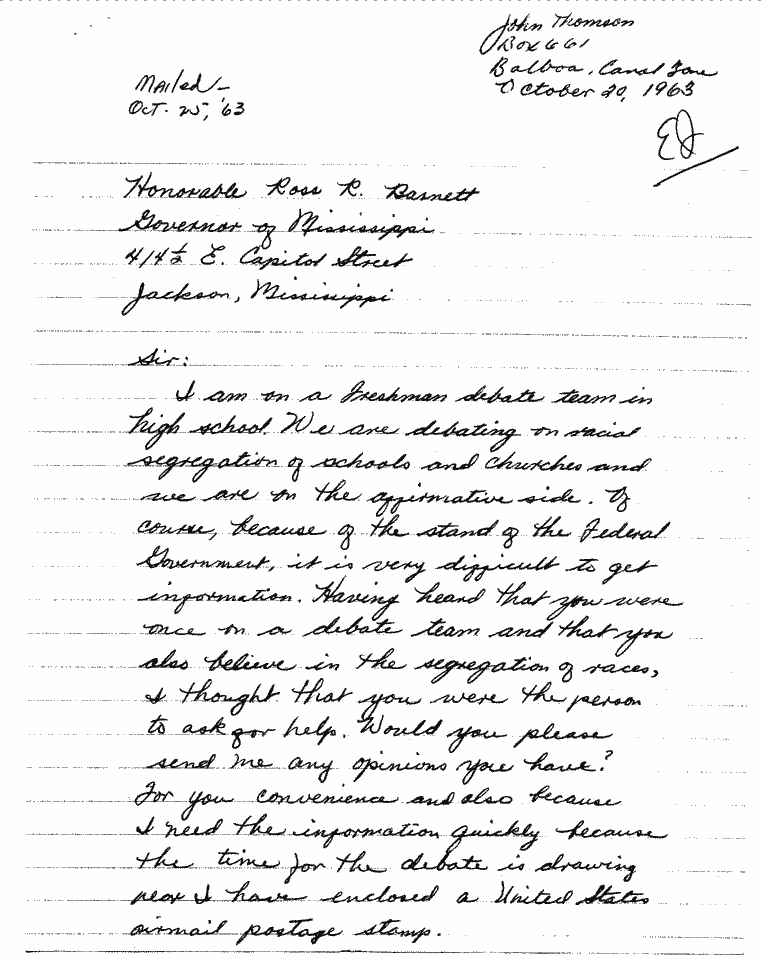 John Thomson
Box 661
Balboa, Canal Zone
October 20, 1963
Mailed –
Oct. 25, '63
EJ
Honorable Ross R. Barnett
Governor of Mississippi
414½ E. Capitol Street
Jackson, Mississippi
Sir:
I am on a Freshman debate team in
high school. We are debating on racial
segregation of schools and churches and
we are on the affirmative side. Of
course, because of the stand of the Federal
Government, it is very difficult to get
information. Having heard that you were
once on a debate team and that you
also believe in the segregation of races,
I thought that you were the person
to ask for help. Would you please
send me any opinions you have?
For you convenience and also because
I need the information quickly because
the time for the debate is drawing
near I have enclosed a United States
airmail postage stamp.